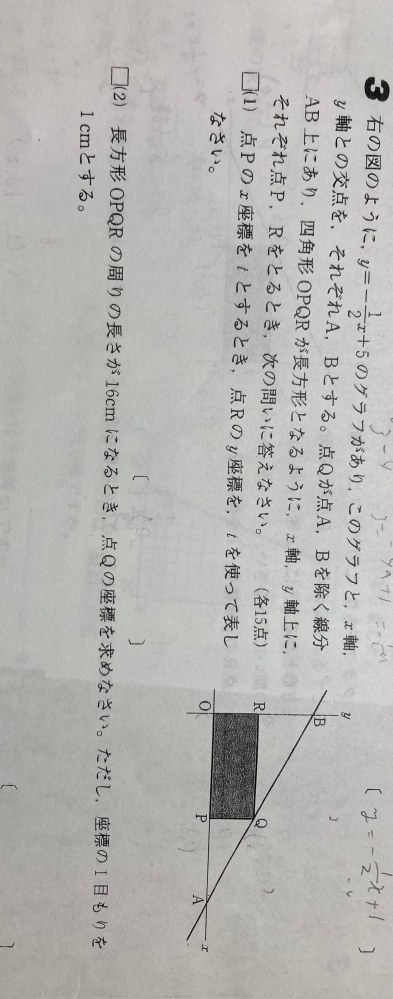 3 右の図のように、y=-1/2x+5のグラフがあり、このグラフと、x軸,
y軸との交点を、それぞれA，Bとする。点Qが点A，Bを除く線分
AB上にあり、四角形OPQRが長方形となるように、x軸，y軸上に、
それぞれ点P，Rをとるとき、次の問いに答えなさい。 (各15点)
□(1) 点Pのx座標をtとするとき、点Rのy座標を、tを使って表し
なさい。
〔 〕
□(2) 長方形OPQRの周りの長さが16cmになるとき、点Qの座標を求めなさい。ただし、座標の1目もりを
1cmとする。
〔 〕
〔 y=-1/2x+1 〕
y
B
R
Q
O
P
A
x